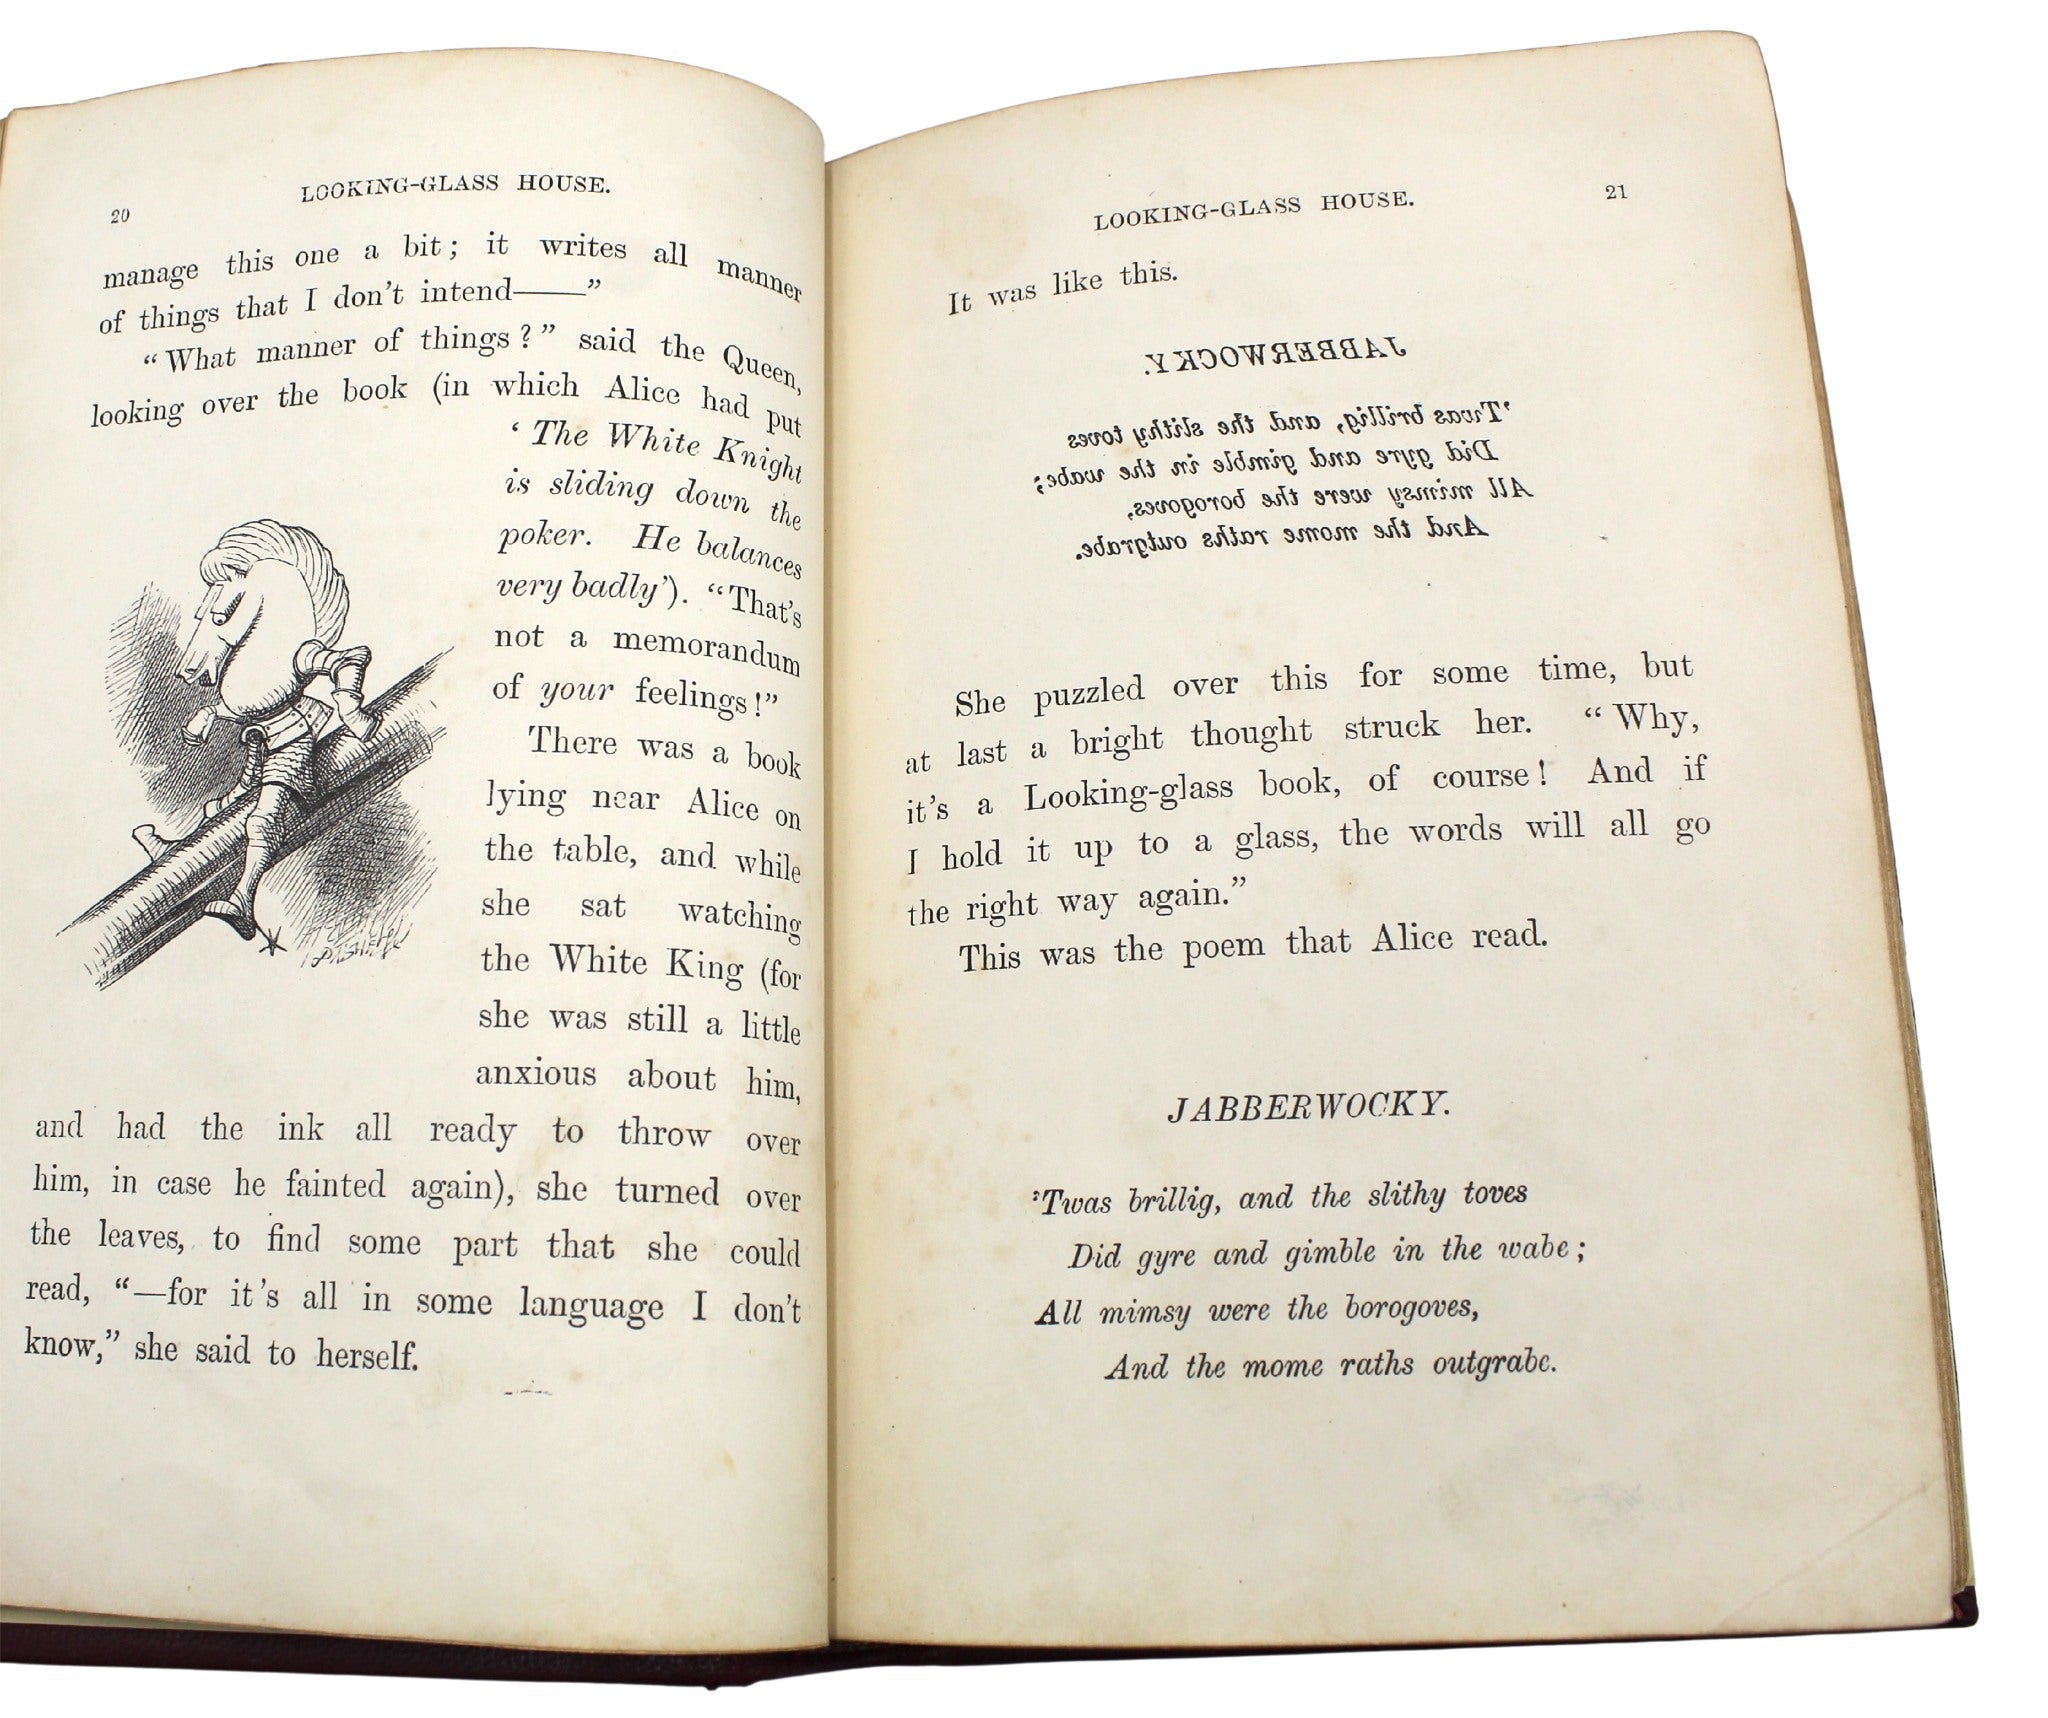 20
LOOKING-GLASS HOUSE.
manage this one a bit; it writes all manner
of things that I don't intend——"
"What manner of things?" said the Queen,
looking over the book (in which Alice had put
'The White Knight
is sliding down the
poker. He balances
very badly'). "That's
not a memorandum
of your feelings!"
There was a book
lying near Alice on
the table, and while
she sat watching
the White King (for
she was still a little
anxious about him,
and had the ink all ready to throw over
him, in case he fainted again), she turned over
the leaves, to find some part that she could
read, "—for it's all in some language I don't
know," she said to herself.
LOOKING-GLASS HOUSE.
21
It was like this.
JABBERWOCKY.
'Twas brillig, and the slithy toves
Did gyre and gimble in the wabe;
All mimsy were the borogoves,
And the mome raths outgrabe.
She puzzled over this for some time, but
at last a bright thought struck her. "Why,
it's a Looking-glass book, of course! And if
I hold it up to a glass, the words will all go
the right way again."
This was the poem that Alice read.
JABBERWOCKY.
'Twas brillig, and the slithy toves
Did gyre and gimble in the wabe;
All mimsy were the borogoves,
And the mome raths outgrabe.